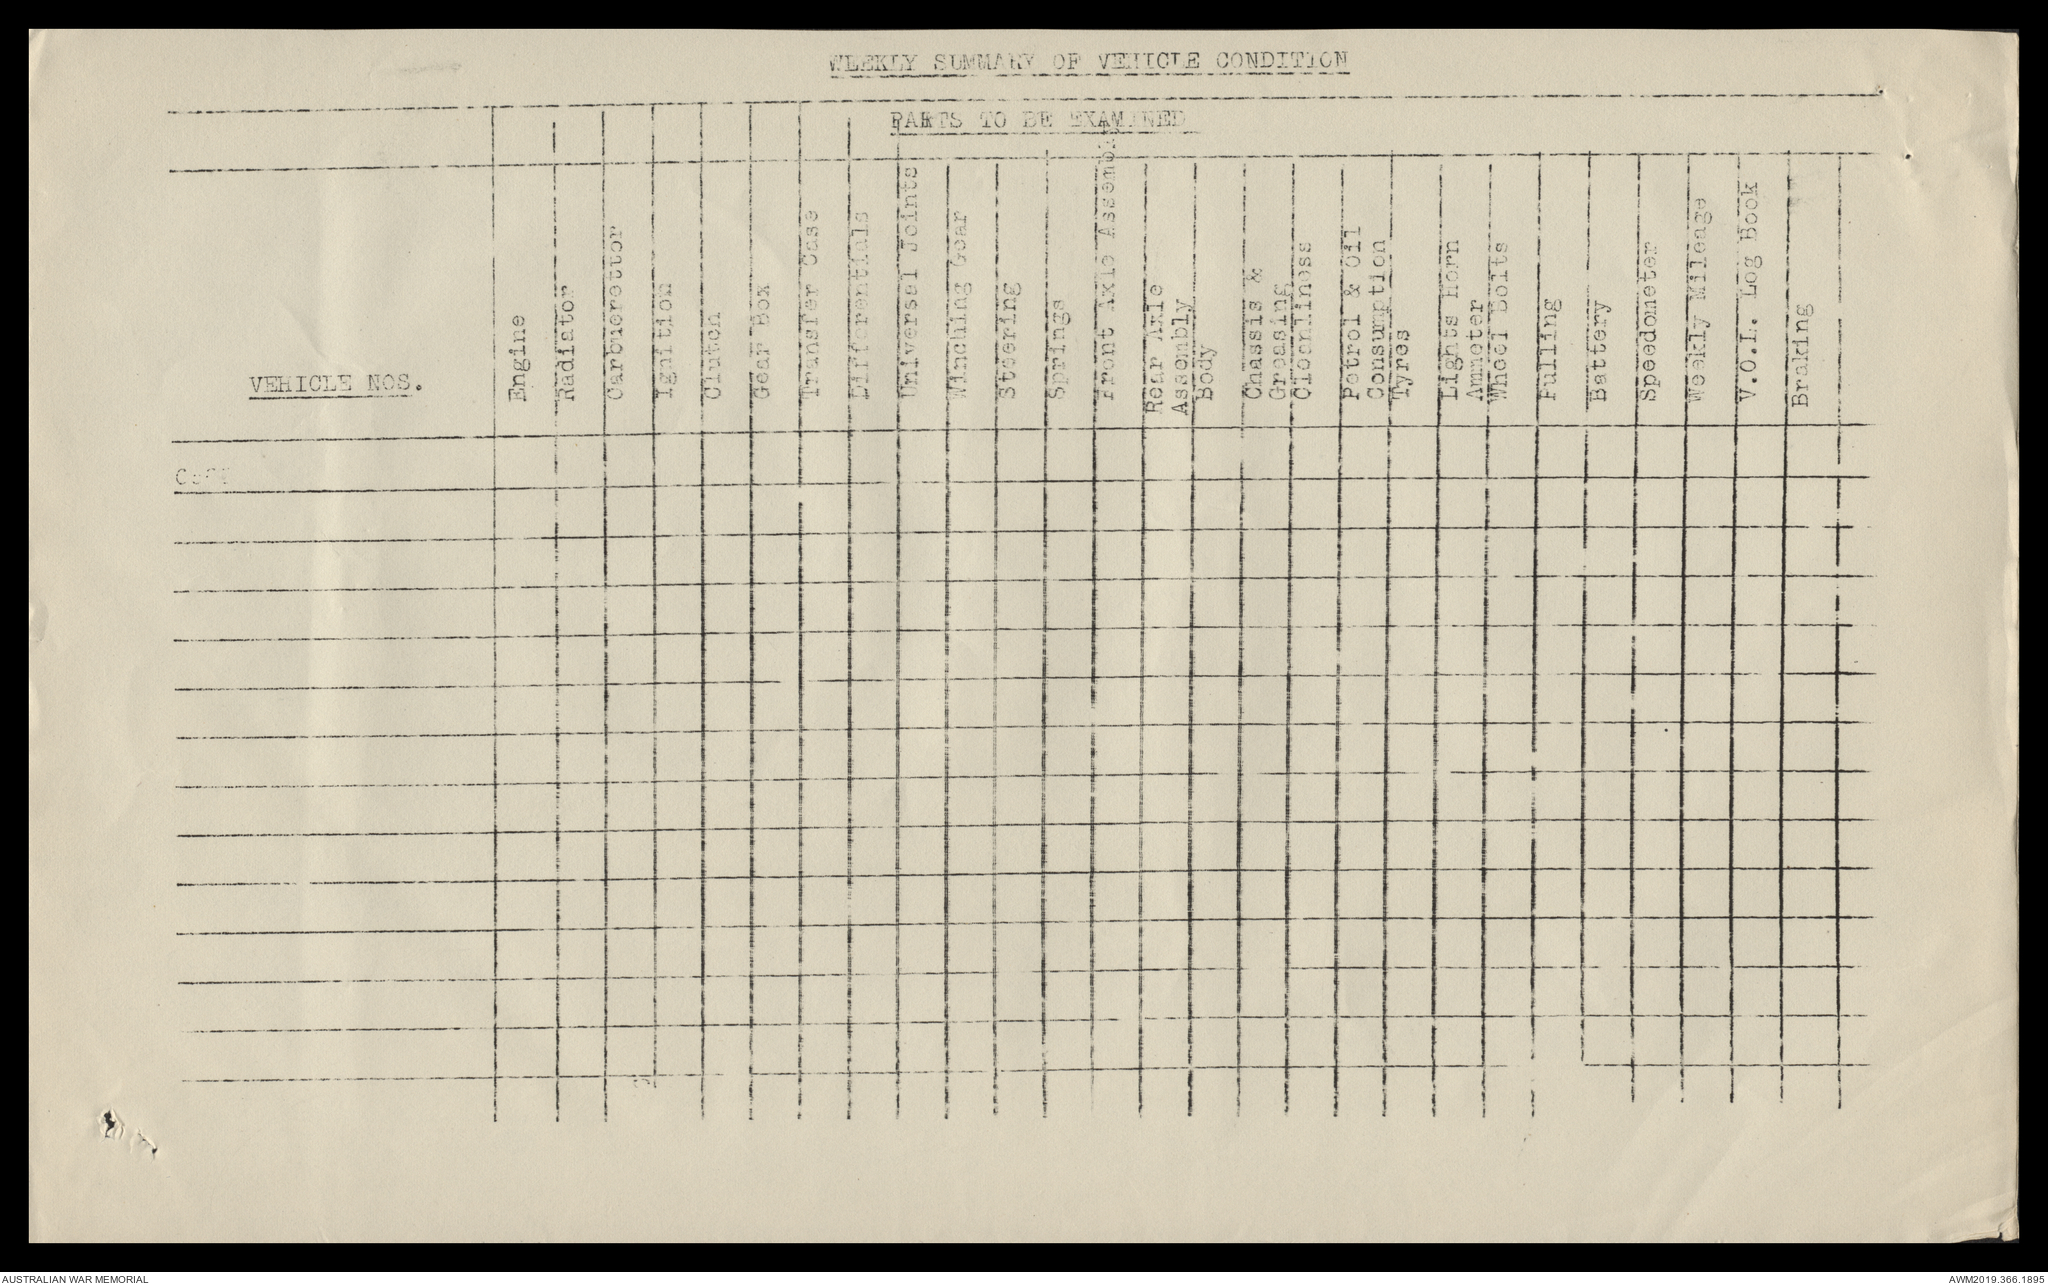 WEEKLY SUMMARY OF VEHICLE CONDITION
PARTS TO BE EXAMINED
VEHICLE NOS.
Engine
Radiator
Carbuerettor
Ignition
Clutch
Gear Box
Transfer Case
Differentials
Universal Joints
Winching Gear
Steering
Springs
Front Axle Assembly
Rear Axle
Assembly
Body
Chassis &
Greasing
Cleanliness
Petrol & Oil
Consumption
Tyres
Lights Horn
Ammeter
Wheel Bolts
Pulling
Battery
Speedometer
Weekly Mileage
V.O.L. Log Book
Braking
AUSTRALIAN WAR MEMORIAL
AWM2019.366.1895